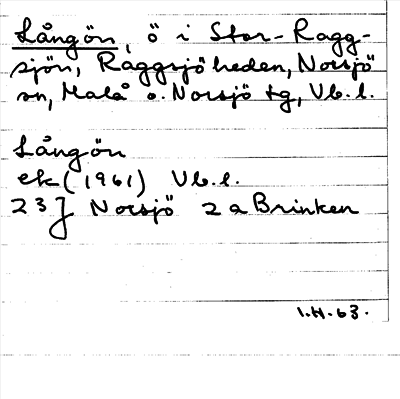 Långön, ö i Stor-Ragg-
sjön, Raggsjöheden, Norsjö
sn, Malå o. Norsjö tg, Vb.l.
Långön
ek (1961) Vb.l.
23J Norsjö 2a Brinken
I.H.63.